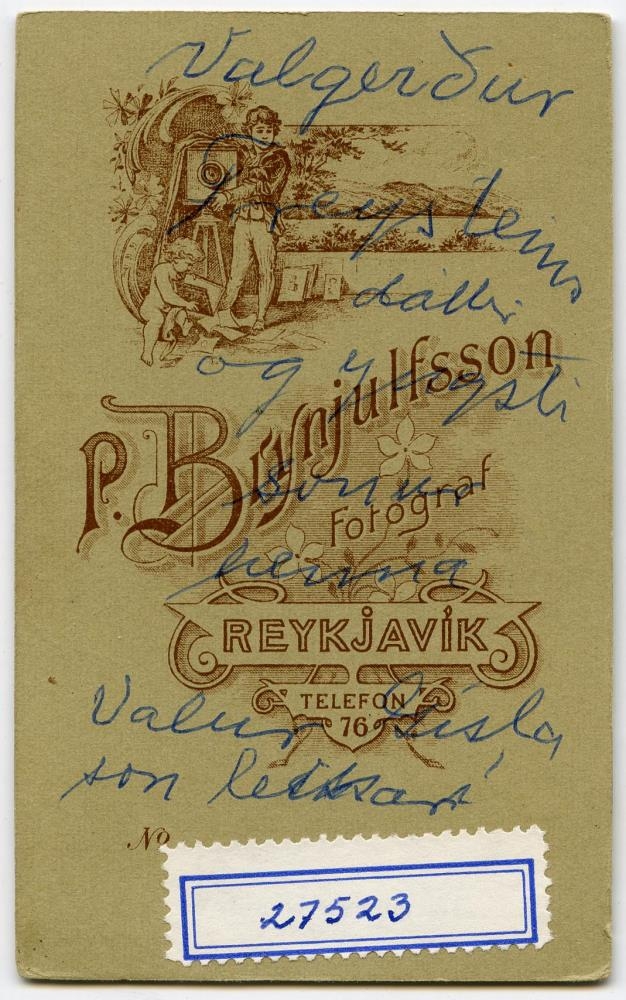 Valgerður
Freysteins
dóttir
og yngsti
P. Brynjulfsson
sonur
Fotograf
hennar
REYKJAVÍK
TELEFON
76
Valur Gísla
son leikari
No
27523